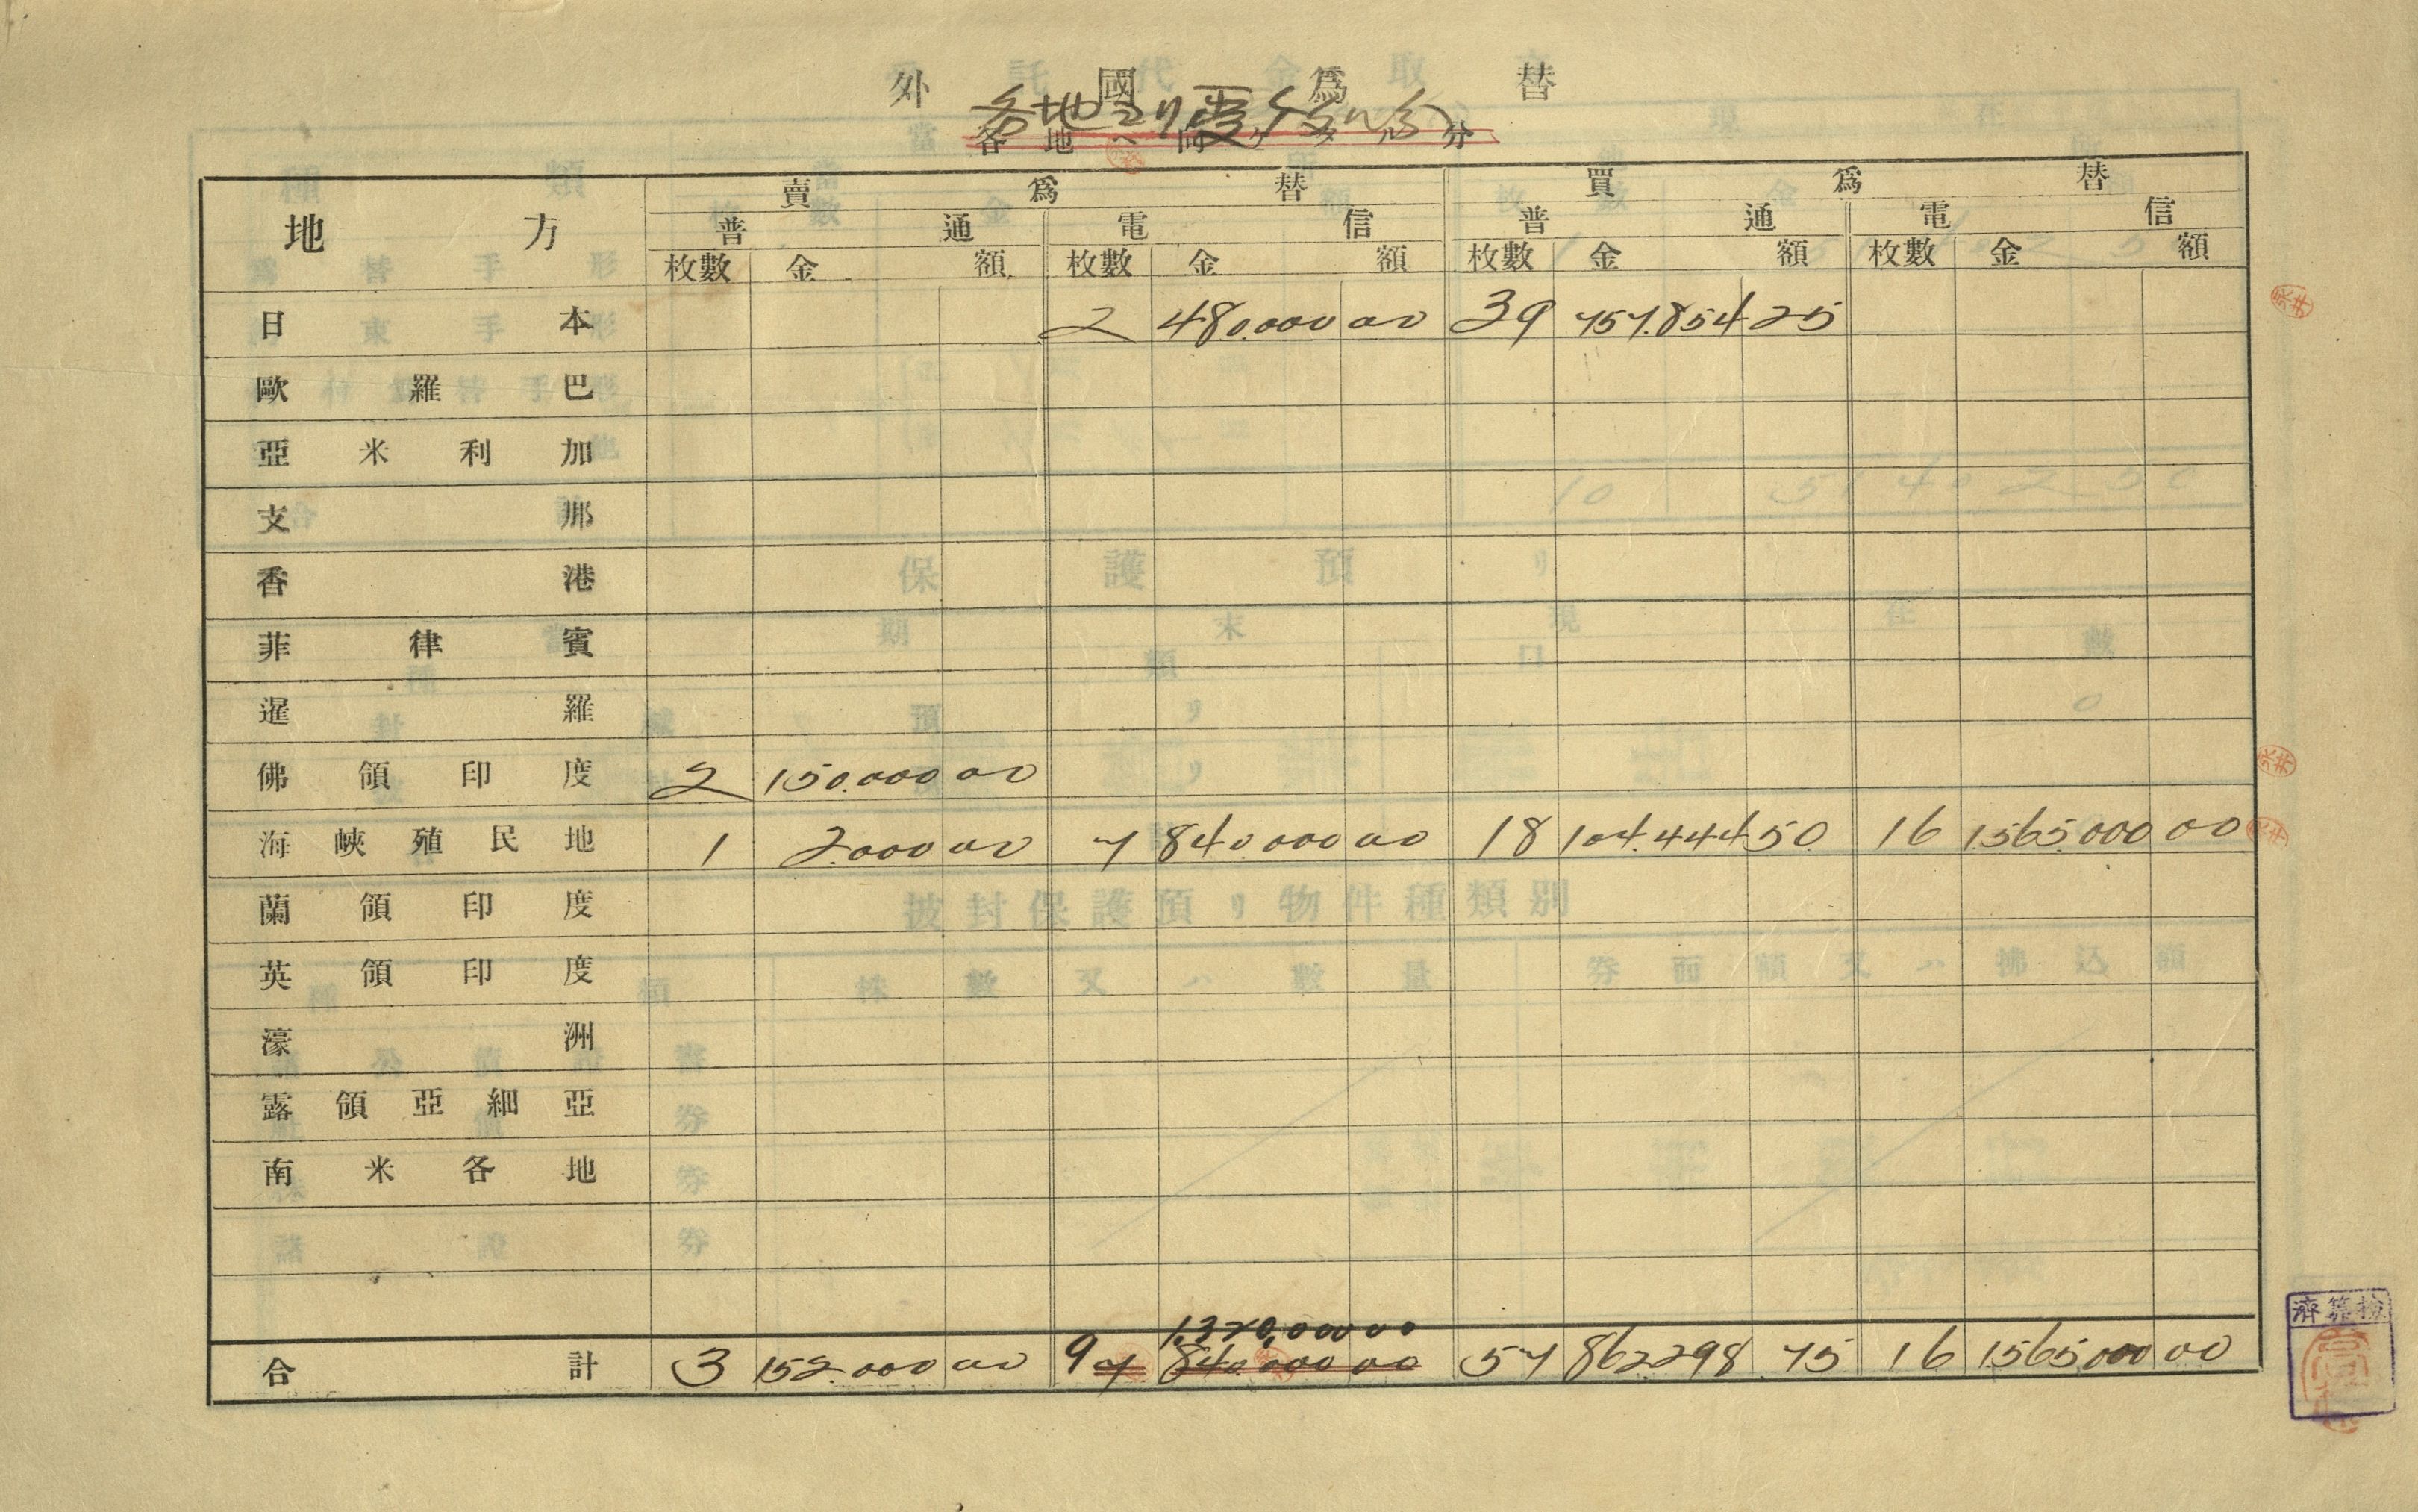 外國爲替
各地ヨリ受ケタル分
各地ヘ向ケタル分
地方 賣爲替 買爲替
普通 電信 普通 電信
枚數 金額 枚數 金額 枚數 金額 枚數 金額
日本 2 480.000 00 39 757.854 25
歐羅巴
亞米利加
支那
香港
菲律賓
暹羅
佛領印度 2 150.000 00
海峽殖民地 1 2.000 00 7 840.000 00 18 104.444 50 16 1.565.000 00
蘭領印度
英領印度
濠洲
露領亞細亞
南米各地
1,320,000 00
合計 3 152.000 00 9 7 840.000 00 57 862.298 75 16 1565,000 00
檢算濟